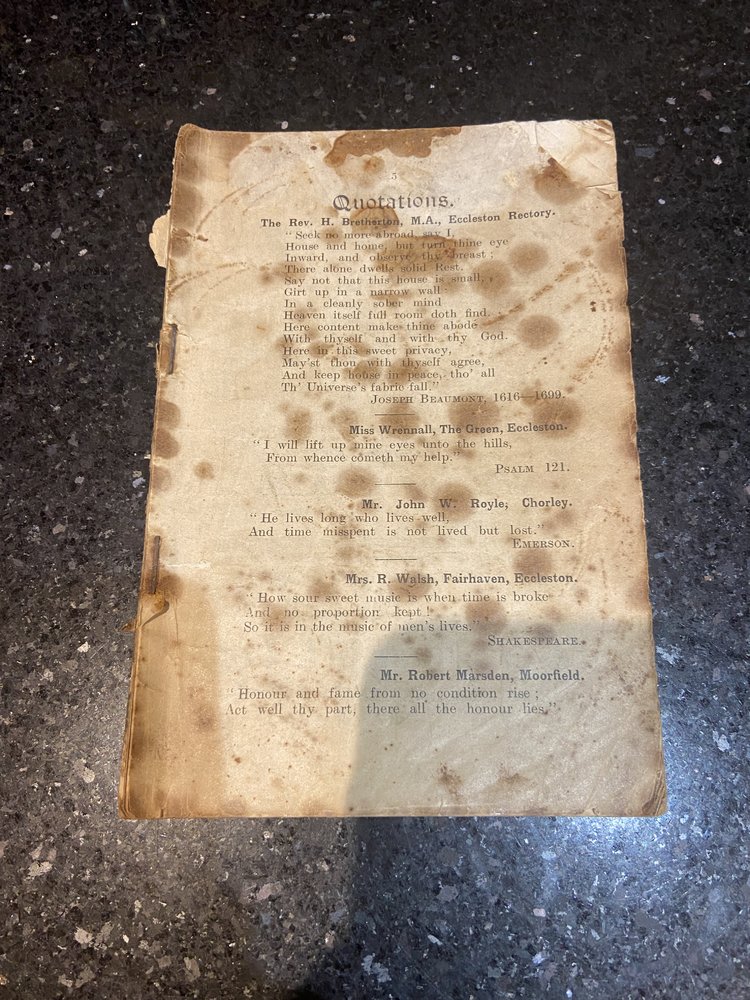 5
Quotations.
The Rev. H. Bretherton, M.A., Eccleston Rectory.
" Seek no more abroad, say I,
House and home, but turn thine eye
Inward, and observe thy breast ;
There alone dwells solid Rest.
Say not that this house is small,
Girt up in a narrow wall
In a cleanly sober mind
Heaven itself full room doth find.
Here content make thine abode
With thyself and with thy God.
Here in this sweet privacy,
May'st thou with thyself agree,
And keep house in peace, tho' all
Th' Universe's fabric fall."
Joseph Beaumont, 1616—1699.
Miss Wrennall, The Green, Eccleston.
" I will lift up mine eyes unto the hills,
From whence cometh my help."
Psalm 121.
Mr. John W. Royle, Chorley.
" He lives long who lives well,
And time misspent is not lived but lost."
Emerson.
Mrs. R. Walsh, Fairhaven, Eccleston.
" How sour sweet music is when time is broke
And no proportion kept !
So it is in the music of men's lives."
Shakespeare.
Mr. Robert Marsden, Moorfield.
" Honour and fame from no condition rise ;
Act well thy part, there all the honour lies."